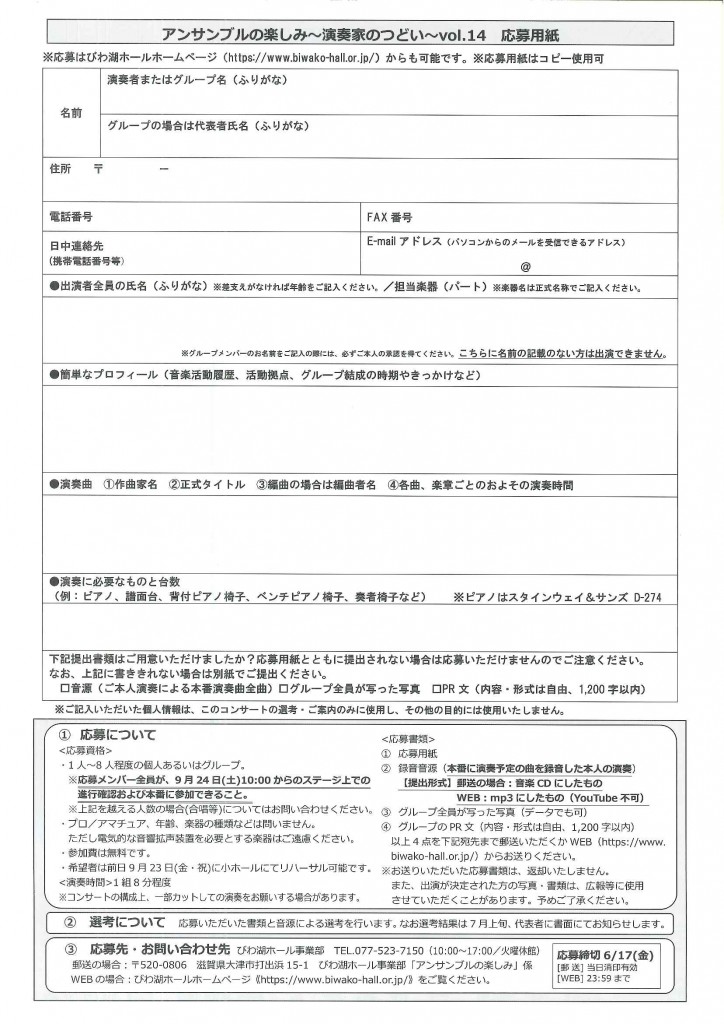 アンサンブルの楽しみ～演奏家のつどい～vol.14　応募用紙
※応募はびわ湖ホールホームページ（https://www.biwako-hall.or.jp/）からも可能です。※応募用紙はコピー使用可
名前
演奏者またはグループ名（ふりがな）
グループの場合は代表者氏名（ふりがな）
住所　〒　　　－
電話番号
FAX 番号
日中連絡先
(携帯電話番号等)
E-mail アドレス（パソコンからのメールを受信できるアドレス）
@
●出演者全員の氏名（ふりがな）※差支えがなければ年齢をご記入ください。／担当楽器（パート）※楽器名は正式名称でご記入ください。
※グループメンバーのお名前をご記入の際には、必ずご本人の承認を得てください。こちらに名前の記載のない方は出演できません。
●簡単なプロフィール（音楽活動履歴、活動拠点、グループ結成の時期やきっかけなど）
●演奏曲　①作曲家名　②正式タイトル　③編曲の場合は編曲者名　④各曲、楽章ごとのおよその演奏時間
●演奏に必要なものと台数
（例：ピアノ、譜面台、背付ピアノ椅子、ベンチピアノ椅子、奏者椅子など）　　※ピアノはスタインウェイ＆サンズ D-274
下記提出書類はご用意いただけましたか？応募用紙とともに提出されない場合は応募いただけませんのでご注意ください。
なお、上記に書ききれない場合は別紙でご提出ください。
□音源（ご本人演奏による本番演奏曲全曲）□グループ全員が写った写真　□PR 文（内容・形式は自由、1,200 字以内）
※ご記入いただいた個人情報は、このコンサートの選考・ご案内のみに使用し、その他の目的には使用いたしません。
①　応募について
<応募資格>
・1 人～8 人程度の個人あるいはグループ。
※応募メンバー全員が、9 月 24 日(土)10:00 からのステージ上での
進行確認および本番に参加できること。
※上記を越える人数の場合(合唱等)についてはお問い合わせください。
・プロ／アマチュア、年齢、楽器の種類などは問いません。
ただし電気的な音響拡声装置を必要とする楽器はご遠慮ください。
・参加費は無料です。
・希望者は前日 9 月 23 日(金・祝)に小ホールにてリハーサル可能です。
<演奏時間>1 組 8 分程度
※コンサートの構成上、一部カットしての演奏をお願いする場合があります。
<応募書類>
①　応募用紙
②　録音音源（本番に演奏予定の曲を録音した本人の演奏）
【提出形式】郵送の場合：音楽 CD にしたもの
WEB：mp3 にしたもの（YouTube 不可）
③　グループ全員が写った写真（データでも可）
④　グループの PR 文（内容・形式は自由、1,200 字以内）
以上 4 点を下記宛先まで郵送いただくか WEB（https://www.
biwako-hall.or.jp/）からお送りください。
※お送りいただいた応募書類は、返却いたしません。
また、出演が決定された方の写真・書類は、広報等に使用
させていただくことがあります。予めご了承ください。
②　選考について　応募いただいた書類と音源による選考を行います。なお選考結果は 7 月上旬、代表者に書面にてお知らせします。
③　応募先・お問い合わせ先　びわ湖ホール事業部　TEL.077-523-7150（10:00～17:00／火曜休館）
郵送の場合：〒520-0806　滋賀県大津市打出浜 15-1　びわ湖ホール事業部「アンサンブルの楽しみ」係
WEB の場合：びわ湖ホールホームページ《https://www.biwako-hall.or.jp/》をご覧ください。
応募締切 6/17(金)
[郵 送] 当日消印有効
[WEB] 23:59 まで